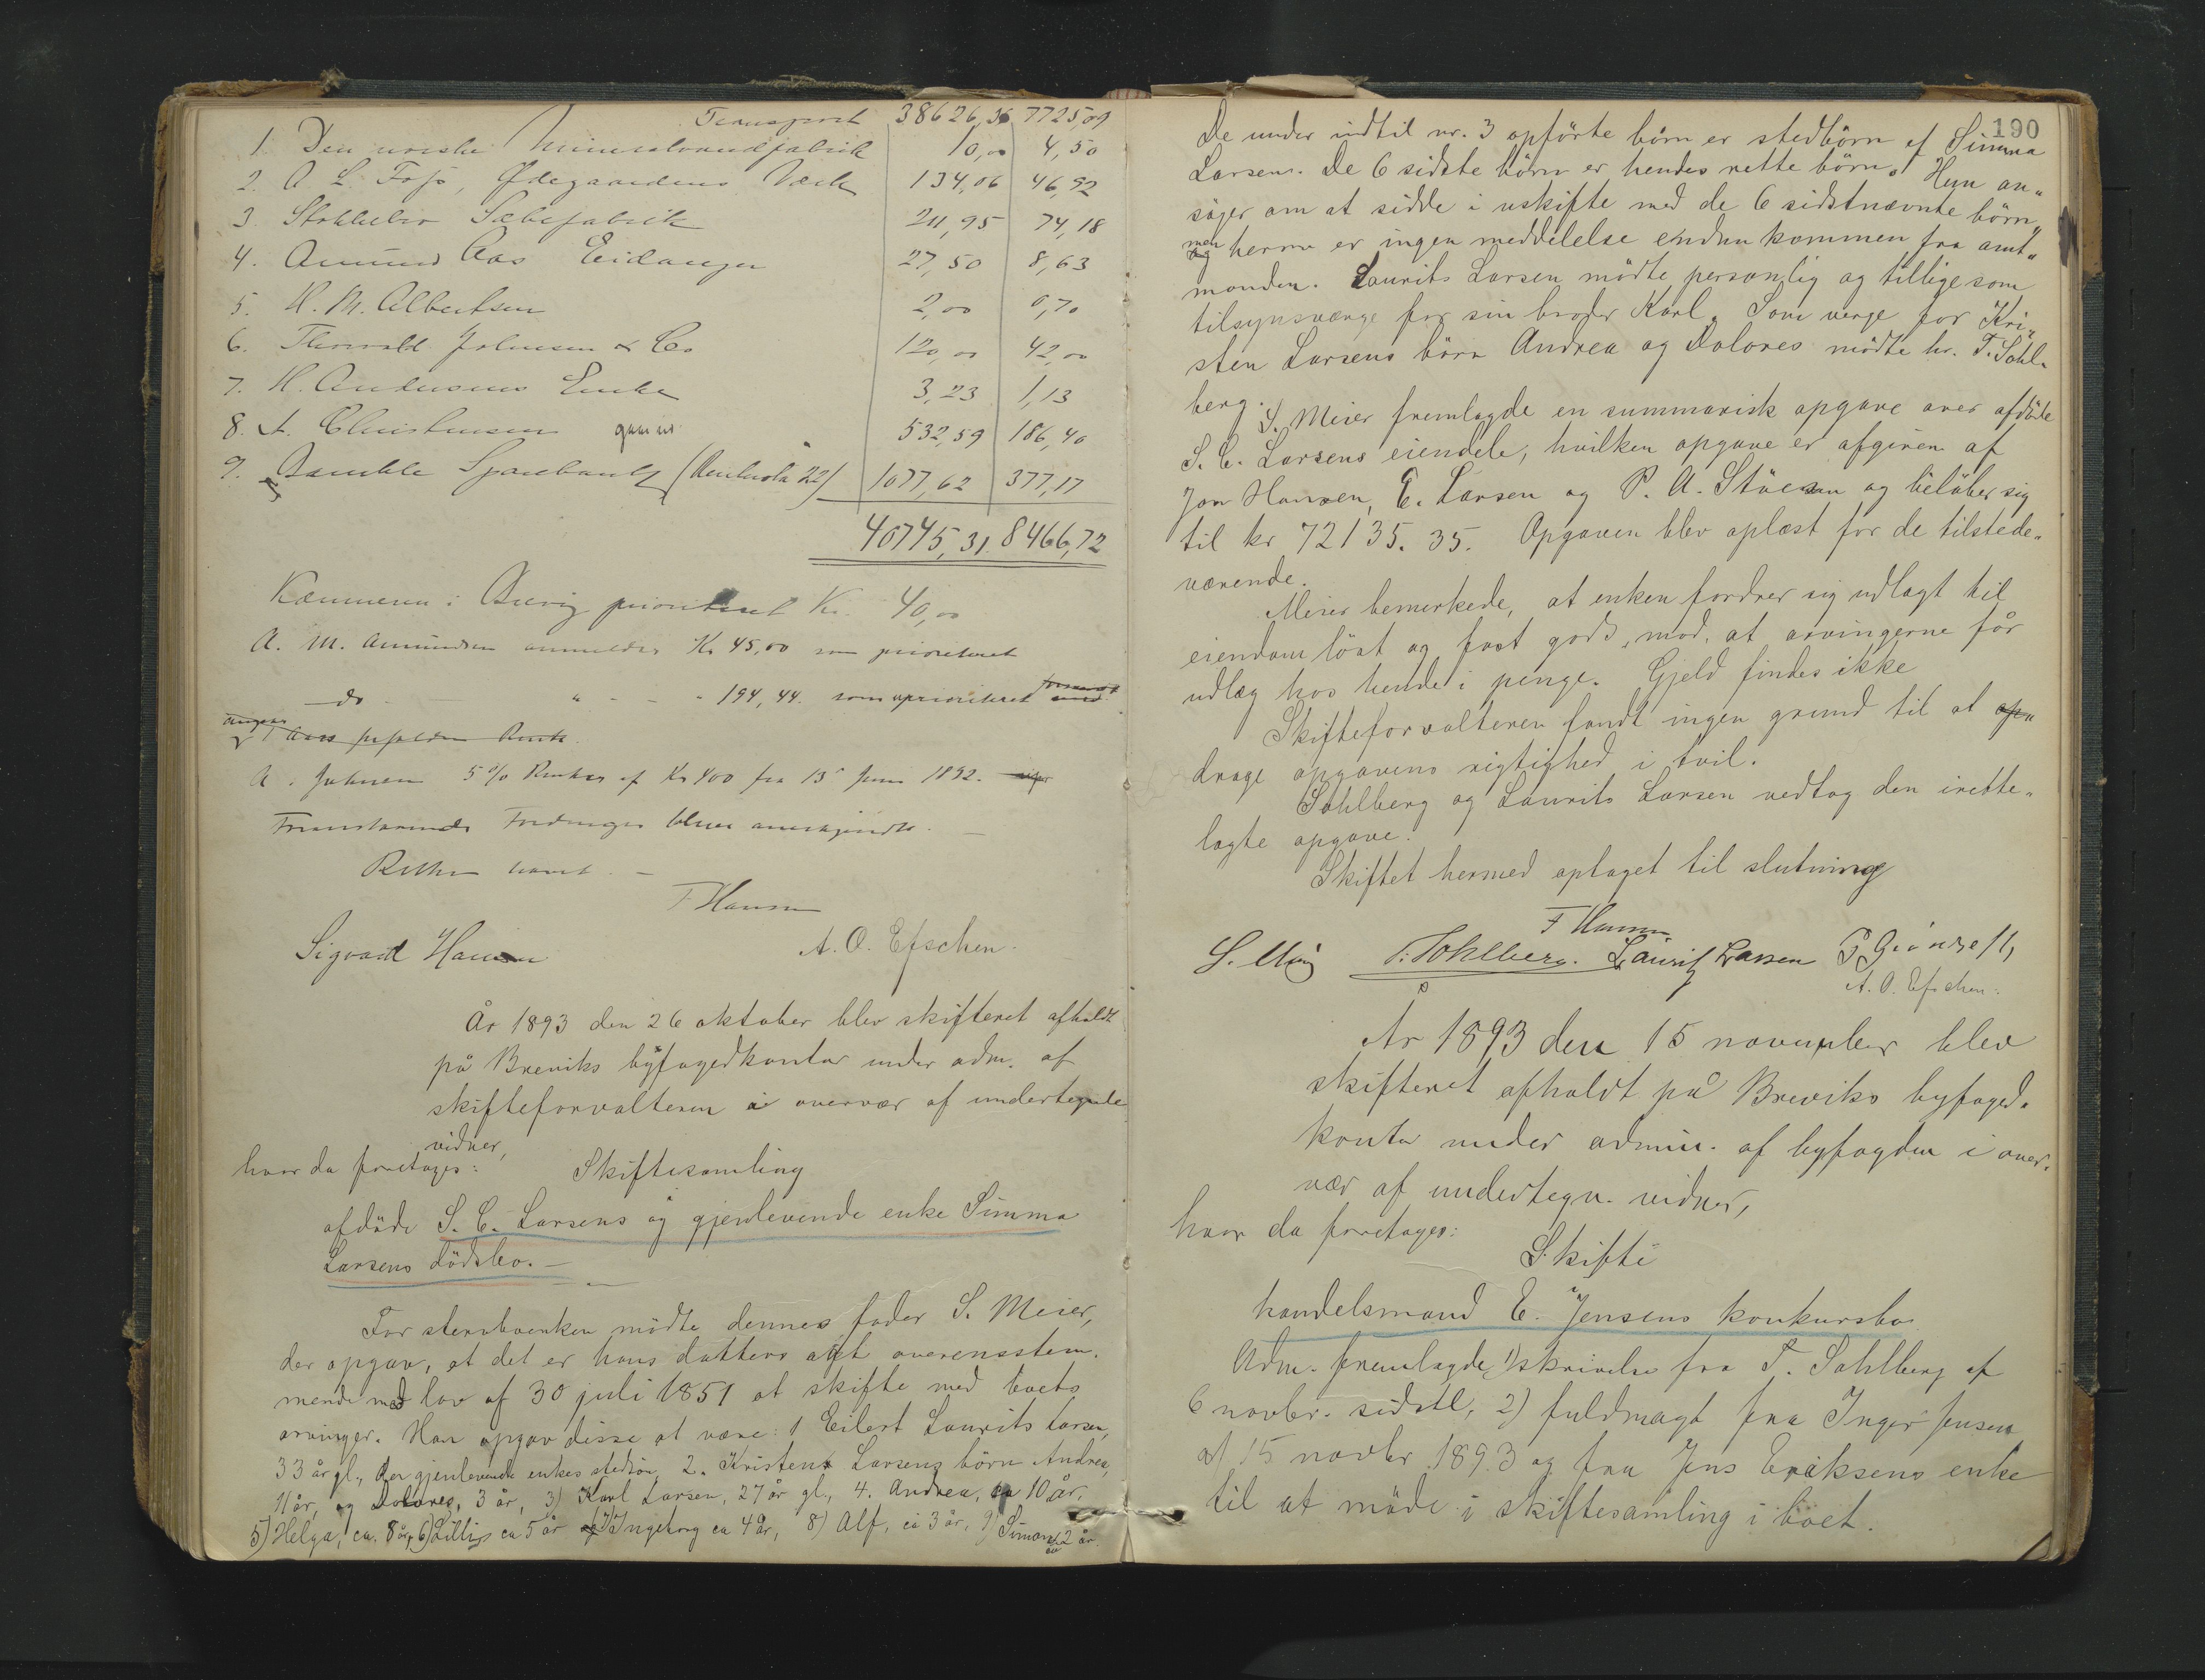 Transport 38626,36 7725,09
1. Den norske Mineralvandfabrik 10,00 4,50
2. A L. Foss, Ødegaardens Værk 134,06 46,92
3. Stokkebro Sæbefabrik 211,95 74,18
4. Amund Aas Eidanger 27,50 8,63
5. H. M. Albertsen 2,00 0,70
6. Thorvald Johnsen & Co 120,00 42,00
7. H. Andersens Enke 3,23 1,13
8. A. Christensen 532,59 186,40
9. Bamble Sparebank 1077,62 377,17
40745,31. 8466,72
Kæmneren i Brevig prioriteret Kr. 40,00
A. M. Amundsen anmelder Kr 45,00 som prioriteret
— do — " - - - 194,44. som uprioriteret
A. Johnsen 5 % Renter af Kr 400 fra 13 Juni 1892.
Foranstaaende Fordringer blev anerkjendt. —
Retten hævet. —
F Hansen
Sigvard Hansen A. O. Efschen.
År 1893 den 26 oktober blev skifteret afholdt
på Breviks byfogedkontor under adm. af
skifteforvalteren i overvær af undertegnede
vidner,
hvor da foretages: Skiftesamling
afdöde S. C. Larsens og gjenlevende enke Simma
Larsens dödsbo. —
For stervboenken mödte dennes fader S. Meier,
der opgav, at det er hans datters agt overensstem-
mende med lov af 30 juli 1851 at skifte med boets
arvinger. Han opgav disse at være: 1 Eilert Laurits Larsen,
33 år gl., den gjenlevende enkes stedsön, 2. Kristen Larsens börn Andrea,
11 år, og Dolores, 3 år, 3) Karl Larsen, 27 år gl., 4. Andrea, ca 10 år,
5) Helga, ca. 8 år, 6) Lilly ca 5 år 7) Ingeborg ca 4 år, 8) Alf, ca 3 år, 9) Simon ca 2 år.
190
De under indtil nr. 3 opförte börn er stedbörn af Simma
Larsen. De 6 sidste börn er hendes rette börn. Hun an-
söger om at sidde i uskifte med de 6 sidstnævnte börn,
men herom er ingen meddelelse endnu kommen fra amt-
manden. Laurits Larsen mödte personlig og tillige som
tilsynsværge for sin broder Karl. Som verge for Kri-
sten Larsens börn Andrea og Dolores mödte hr. T. Sohl-
berg.
S. Meier fremlagde en summarisk opgave over afdöde
S. C. Larsens eiendele, hvilken opgave er afgiven af
Jon Hansen, E. Larsen og P. A. Stöesen og belöber sig
til kr 72135. 35. Opgaven blev oplæst for de tilstede-
værende.
Meier bemerkede, at enken fordrer sig udlagt til
eiendom löst og fast gods, mod, at arvingerne får
udlæg hos hende i penge. Gjeld findes ikke
Skifteforvalteren fandt ingen grund til at
drage opgavens rigtighed i tvil.
Sohlberg og Laurits Larsen vedtog den irette-
lagte opgave.
Skiftet hermed optaget til slutning
F Hansen
S. Meier T. Sohlberg. Laurits Larsen
A. O. Efschen.
År 1893 den 15 november blev
skifteret afholdt på Breviks byfoged-
kontor under admin. af byfogden i over-
vær af undertegn. vidner,
hvor da foretages:
Skifte
handelsmand E. Jensens konkursbo
Adm. fremlagde 1) skrivelse fra T. Sohlberg af
6 novbr. sidstl, 2) fuldmagt fra Inger Jensen
af 15 novbr 1893 og fra Jens Eriksens enke
til at möde i skiftesamling i boet.